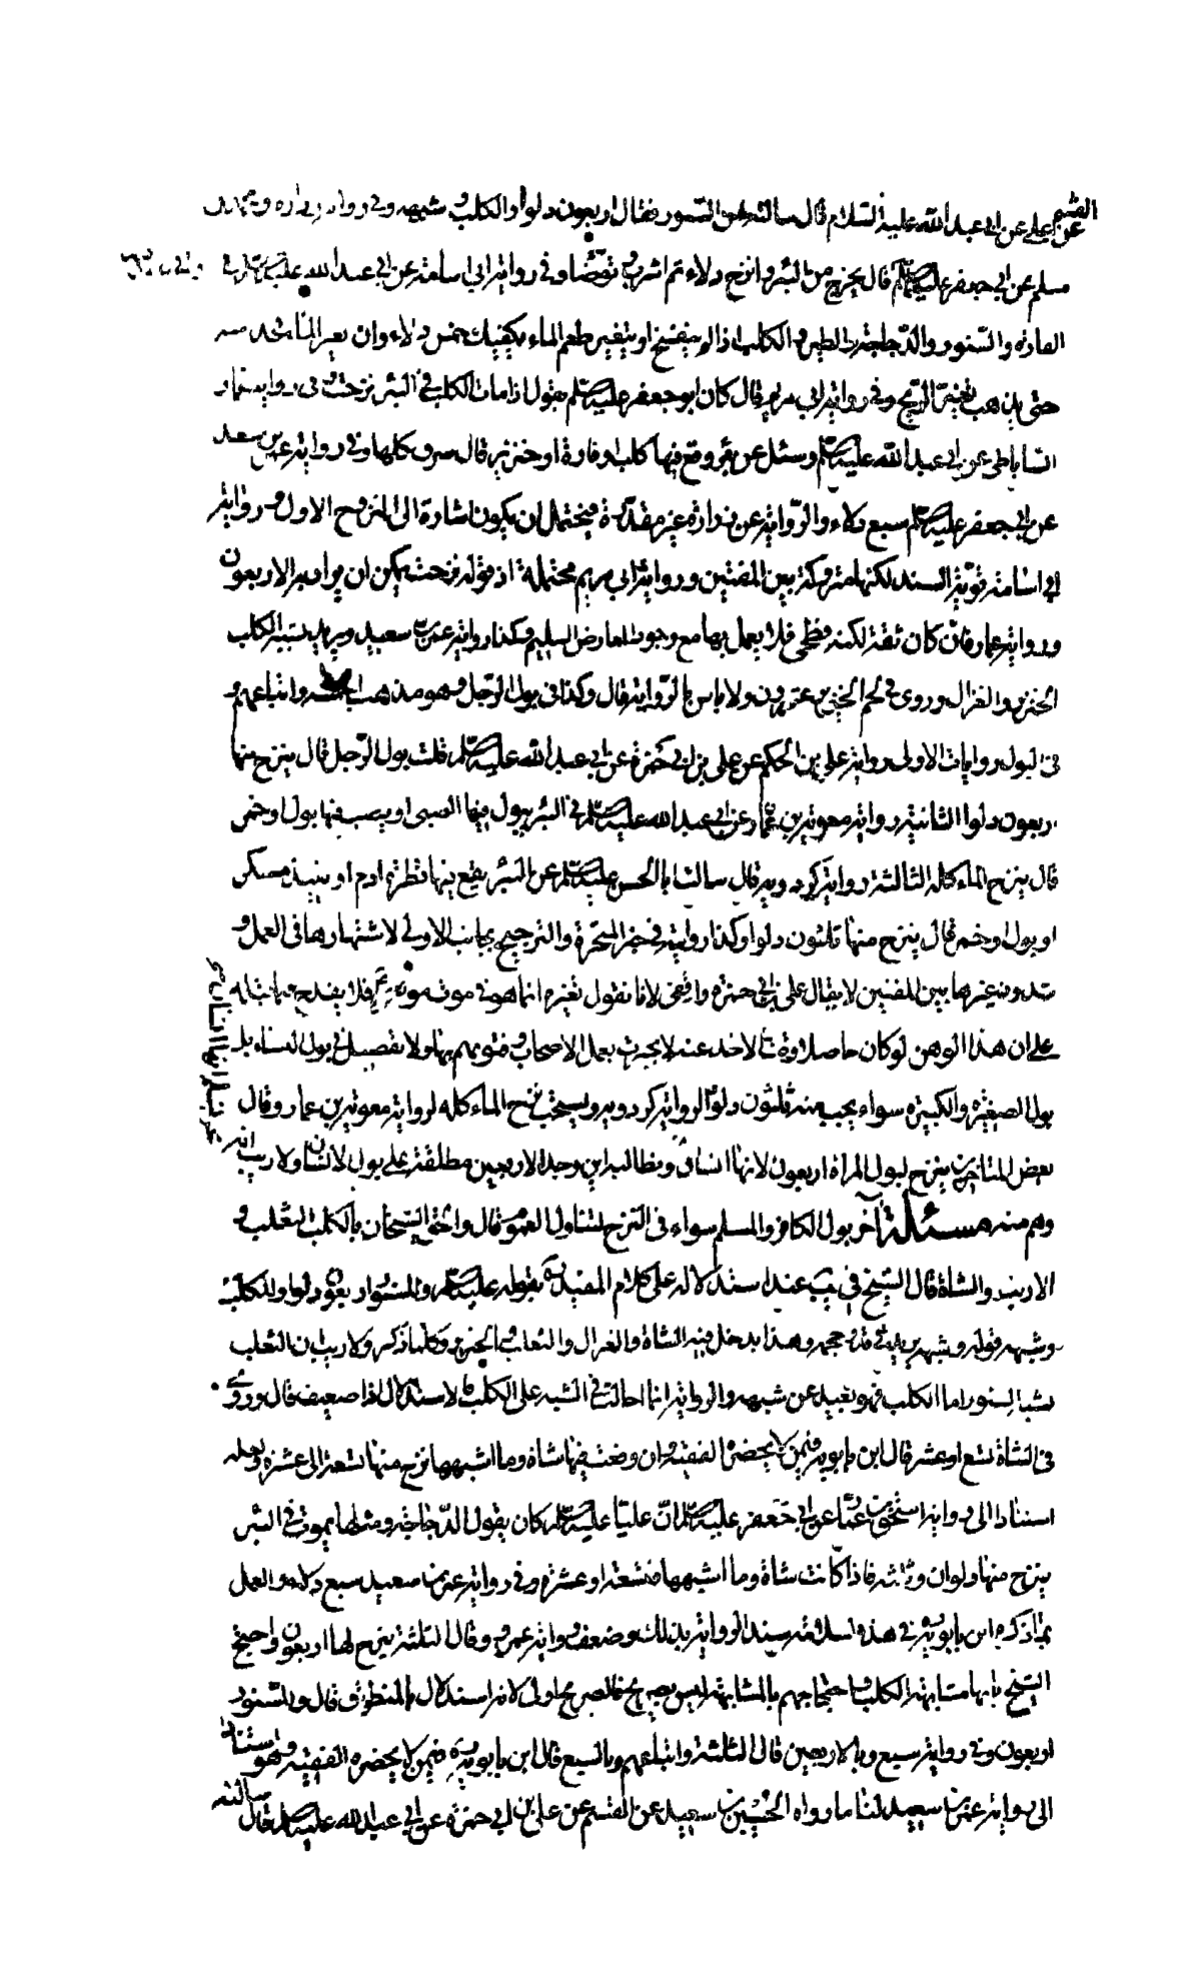 القسم
عن علي عن ابي عبد الله عليه السلام قال سالته عن السنور فقال اربعون دلوا والكلب وشبهه وفي رواية زرارة ومحمد بن
مسلم عن ابي جعفر عليه السلم قال يخرج من البئر وانزح دلاء ثم اشرب وتوضا وفي رواية ابي اسامة عن ابي عبد الله عليه السلم في
الفارة والسنور والدجاجة والطير والكلب اذا لم يتفسخ او يتغير طعم الماء يكفيك خمس دلاء وان تغير الماء فخذ منه
حتى يذهب تغير الريح وفي رواية ابي مريم قال كان ابو جعفر عليه السلم يقول اذا مات الكلب في البئر نزحت وفي رواية عمار
الساباطي عن ابي عبد الله عليه السلم وسئل عن بئر وقع فيها كلب او فارة او خنزير قال ينزف كلها وفي رواية عمر بن سعيد
عن ابي جعفر عليه السلم سبع دلاء والرواية عن زرارة غير مقدرة فيحتمل ان يكون اشارة الى المنزوح الاول ورواية
ابي اسامة قوية السند لكنها متروكة بين المفتين ورواية ابي مريم محتملة اذ قوله نزحت يمكن ان يراد به الاربعون
ورواية عمار وان كان ثقة لكنه فطحي فلا يعمل بها مع وجود المعارض السليم وكذا رواية عمر بن سعيد ويريد بشبه الكلب
الخنزير والغزال وروي في لحم الخنزير عشرون ولا باس بالرواية قال وكذا في بول الرجل وهو مذهب واتباعهم و
في البول روايات الاولى رواية علي بن الحكم عن علي بن ابي حمزة عن ابي عبد الله عليه السلم قلت بول الرجل قال ينزح منها
اربعون دلوا الثانية رواية معوية بن عمار عن ابي عبد الله عليه السلم في البئر يبول فيها الصبي او يصب فيها بول او خمر
قال ينزح الماء كله الثالثة رواية كردويه قال سالت ابا الحسن عليه السلم عن البئر يقع فيها قطرة دم او نبيذ مسكر
او بول او خمر قال ينزح منها ثلثون دلوا وكذا روايته في خبر المبخرة والترجيح بجانب الاولى لاشتهارها في العمل و
شذوذ غيرها بين المفتين لا يقال علي بن ابي حمزة واقفي لانا نقول تغيره انما هو في موت موسى فلا يقدح فيما قبله
على ان هذا الوهن لو كان حاصلا وقت الاخذ عنه لانجبرت بعمل الاصحاب وفتويهم بها ولا تفصيل في بول النساء بل
بول الصغيرة والكبيرة سواء يجب منه ثلثون دلوا لرواية كردويه ويستحب نزح الماء كله لرواية معوية بن عمار وقال
بعض المتاخرين ينزح لبول المراة اربعون لانها انسان ونطالبه اين وجد الاربعين مطلقة على بول الانسان ولا ريب انه
وهم منه مسئلة اخر بول الكافر والمسلم سواء في النزح لتناول العموم قال والحق الشيخان بالكلب الثعلب و
الارنب والشاة قال الشيخ في يب عند استدلاله على كلام المفيد بقوله عليه السلم والسنور اربعون دلوا وللكلب
وشبهه قوله وشبهه يريد في قدر جسمه وهذا يدخل فيه الشاة والغزال والثعلب والخنزير وكلما ذكر ولا ريب ان الثعلب
يشبه السنور اما الكلب فهو بعيد عن شبهه والرواية انما احالت في الشبه على الكلب فالاستدلال اذا ضعيف قال وروي
في الشاة تسع او عشر قال ابن بابويه فيمن لا يحضره الفقيه وان وقعت فيها شاة وما اشبهها نزح منها تسعة الى عشرة ولعله
استنادا الى رواية اسحق بن عمار عن ابي جعفر عليه السلم ان عليا عليه السلم كان يقول الدجاجة ومثلها يموت في البئر
ينزح منها دلوان وثلثة فاذا كانت شاة وما اشبهها فتسعة او عشرة وفي رواية عمر بن سعيد سبع دلاء والعمل
بما ذكره ابن بابويه في هذه لسلامة سند الرواية بذلك وضعف رواية عمرو وقال الثلثة ينزح لها اربعون واحتج
الشيخ بانها مشابهة الكلب واحتجاجهم بالمشابهة ليس بصريح فالصريح اولى لانه استدلال بالمنطوق قال وللسنور
اربعون وفي رواية سبع وبالاربعين قال الثلثة واتباعهم وبالسبع قال ابن بابويه فيمن لا يحضره الفقيه وهو استنادا
الى رواية عمر بن سعيد لنا ما رواه الحسين بن سعيد عن القسم عن علي بن ابي حمزة عن ابي عبد الله عليه السلم قال سالته